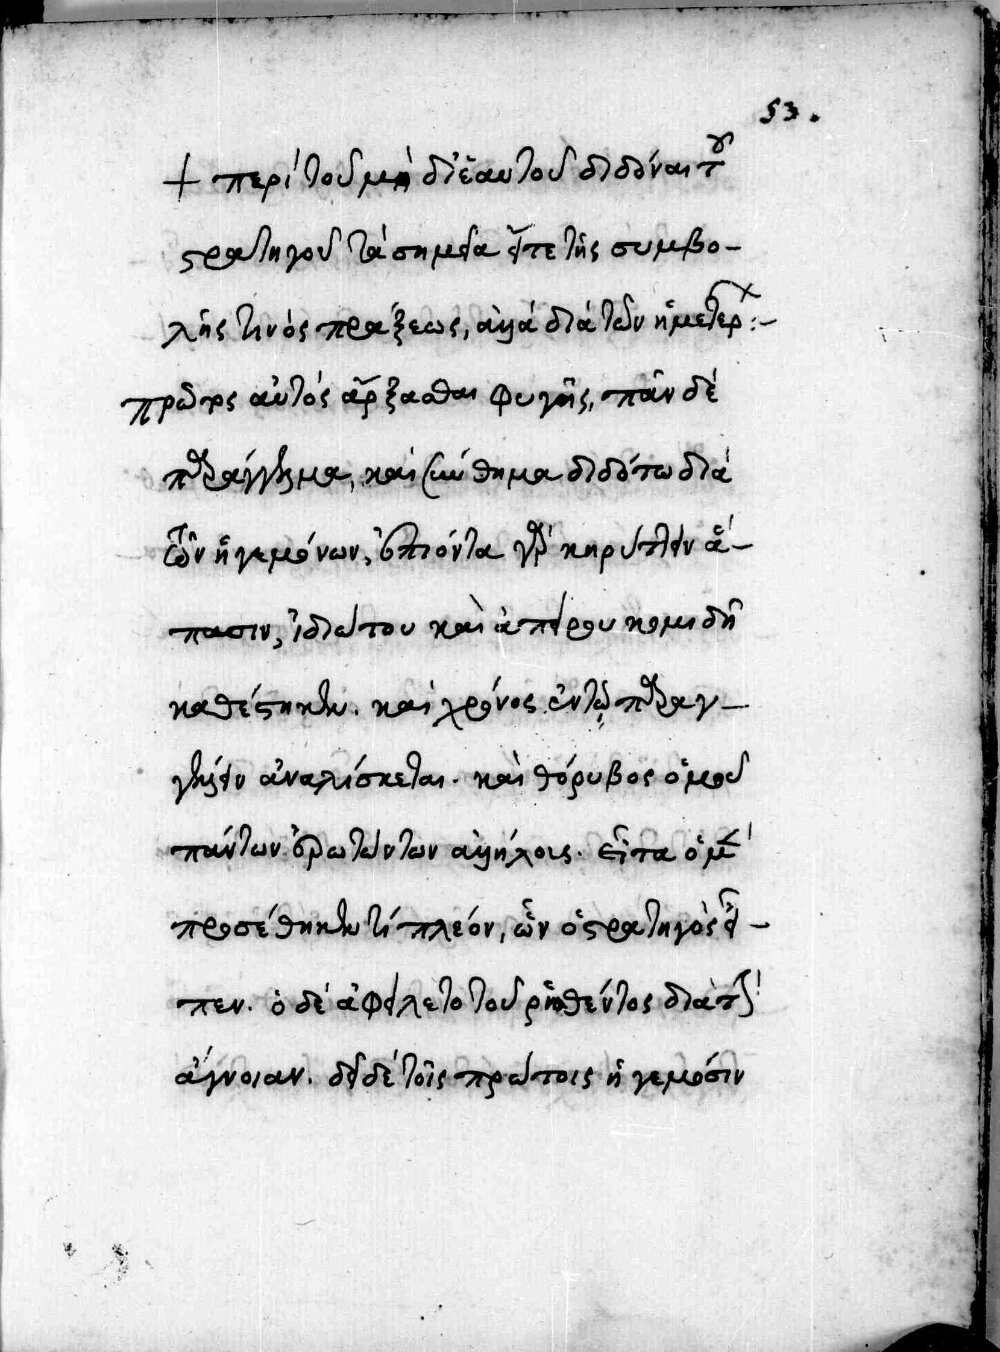 53.
+ περὶ τοῦ μὴ δι' ἑαυτοῦ διδόναι τοῦ
στρατηγοῦ τὰ σημεῖα εἴτε τῆς συμβο-
λῆς τινὸς πράξεως, ἀλλὰ διὰ τῶν ἡμετέρ :-
αὐτὸς ἄρξασθαι φυγῆς, πᾶν δὲ
παράγγελμα, καὶ σύνθημα διδότω διὰ
τῶν ἡγεμόνων, ἐπιόντα γὰρ κηρύττειν ἅ-
πασιν, ἰδιώτου καὶ ἀπείρου κομιδῆ
καθέστηκεν. καὶ χρόνος ἐν τῶ παραγ-
γέλλειν ἀναλίσκεται. καὶ θόρυβος ὁμοῦ
πάντων ἐρωτώντων ἀλλήλοις. εἶτα ὁ μὲν
προσέθηκεν τί πλέον, ὧν ὁ στρατηγὸς εἶ-
πεν. ὁ δὲ ἀφείλετο τοῦ ῥηθέντος διὰ τὴν
ἄγνοιαν. δεῖ δὲ τοῖς πρώτοις ἡγεμόσιν